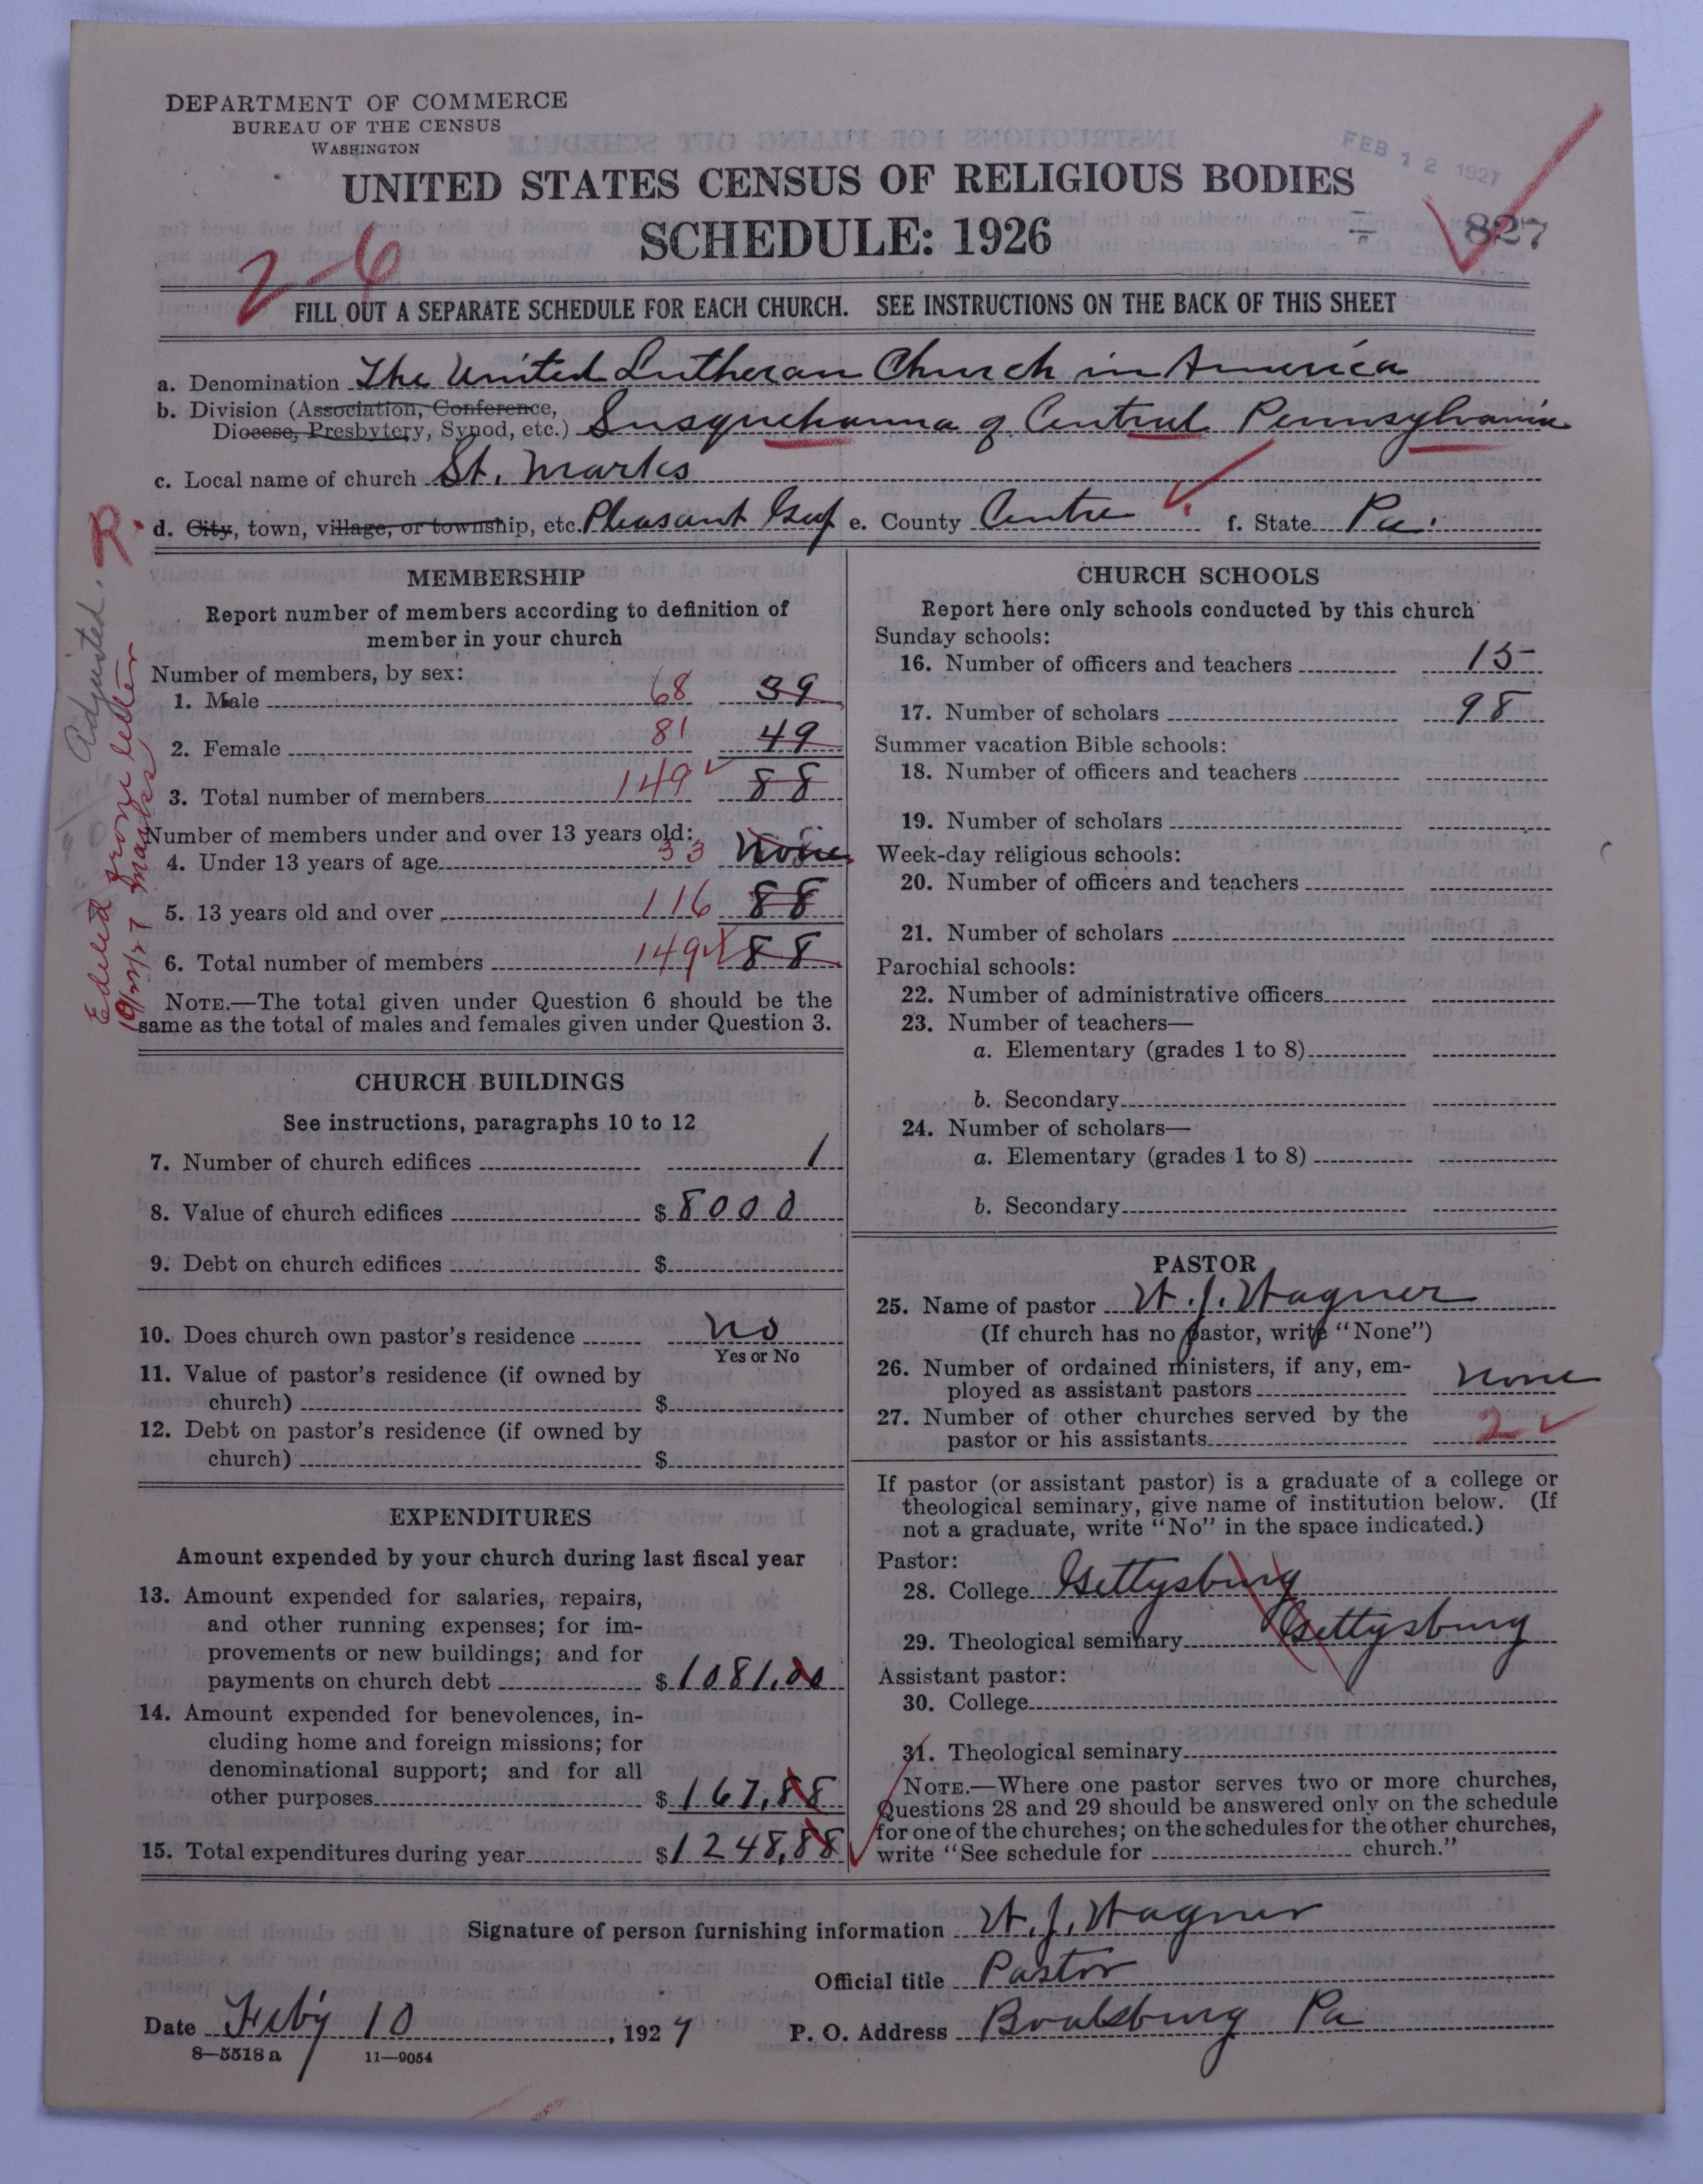 DEPARTMENT OF COMMERCE
BUREAU OF THE CENSUS
WASHINGTON
FEB 12 1927
UNITED STATES CENSUS OF RELIGIOUS BODIES
SCHEDULE: 1926
827
2-6
FILL OUT A SEPARATE SCHEDULE FOR EACH CHURCH. SEE INSTRUCTIONS ON THE BACK OF THIS SHEET
a. Denomination The United Lutheran Church in America
b. Division (Association, Conference,
Diocese, Presbytery, Synod, etc.) Susquehanna of Central Pennsylvania
c. Local name of church St. Marks
d. City, town, village, or township, etc. Pleasant Gap e. County Centre f. State Pa.
R.
Adjusted.
Edited from letter
10/22/27 Marks
MEMBERSHIP
Report number of members according to definition of
member in your church
Number of members, by sex:
1. Male 68 39
2. Female 81 49
3. Total number of members 149 88
Number of members under and over 13 years old:
4. Under 13 years of age 33 None
5. 13 years old and over 116 88
6. Total number of members 149 88
NOTE.—The total given under Question 6 should be the
same as the total of males and females given under Question 3.
CHURCH BUILDINGS
See instructions, paragraphs 10 to 12
7. Number of church edifices 1
8. Value of church edifices $ 8000
9. Debt on church edifices $
10. Does church own pastor's residence No
Yes or No
11. Value of pastor's residence (if owned by
church) $
12. Debt on pastor's residence (if owned by
church) $
EXPENDITURES
Amount expended by your church during last fiscal year
13. Amount expended for salaries, repairs,
and other running expenses; for im-
provements or new buildings; and for
payments on church debt $ 1081.00
14. Amount expended for benevolences, in-
cluding home and foreign missions; for
denominational support; and for all
other purposes $ 167.88
15. Total expenditures during year $ 1248.88
CHURCH SCHOOLS
Report here only schools conducted by this church
Sunday schools:
16. Number of officers and teachers 15
17. Number of scholars 98
Summer vacation Bible schools:
18. Number of officers and teachers
19. Number of scholars
Week-day religious schools:
20. Number of officers and teachers
21. Number of scholars
Parochial schools:
22. Number of administrative officers
23. Number of teachers—
a. Elementary (grades 1 to 8)
b. Secondary
24. Number of scholars—
a. Elementary (grades 1 to 8)
b. Secondary
PASTOR
25. Name of pastor W. J. Wagner
(If church has no pastor, write "None")
26. Number of ordained ministers, if any, em-
ployed as assistant pastors None
27. Number of other churches served by the
pastor or his assistants 2
If pastor (or assistant pastor) is a graduate of a college or
theological seminary, give name of institution below. (If
not a graduate, write "No" in the space indicated.)
Pastor:
28. College Gettysburg
29. Theological seminary Gettysburg
Assistant pastor:
30. College
31. Theological seminary
NOTE.—Where one pastor serves two or more churches,
Questions 28 and 29 should be answered only on the schedule
for one of the churches; on the schedules for the other churches,
write "See schedule for church."
Signature of person furnishing information W. J. Wagner
Official title Pastor
Date Feb'y 10, 1927 P. O. Address Boalsburg Pa
8—5518 a 11—9054